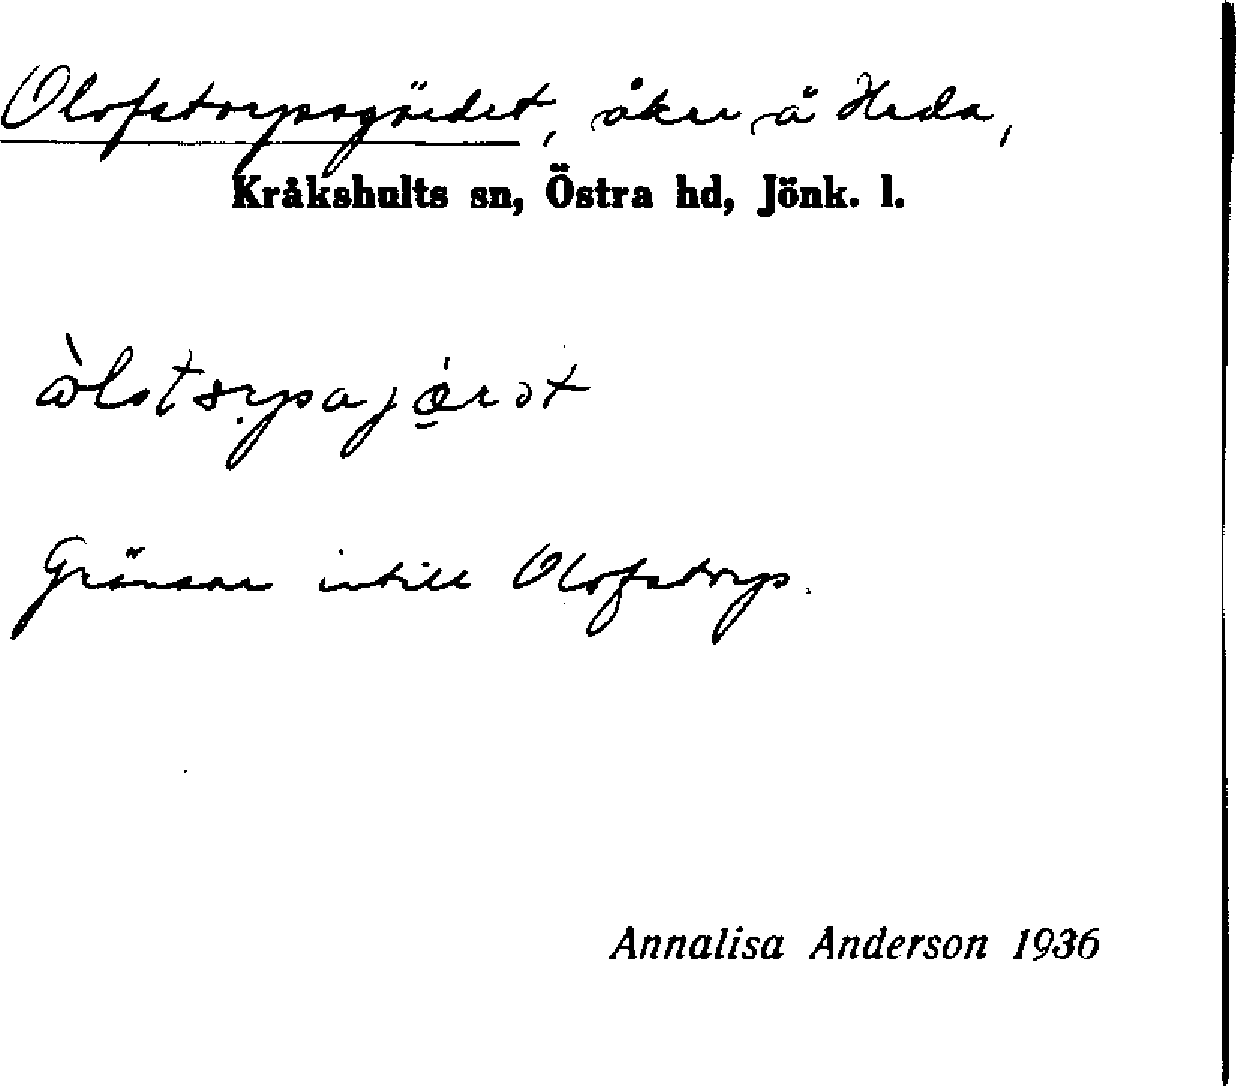 Olofstorpsgärdet, åker å Heda,
Kråkshults sn, Östra hd, Jönk. l.
Gränsar intill Olofstorp.
Annalisa Anderson 1936